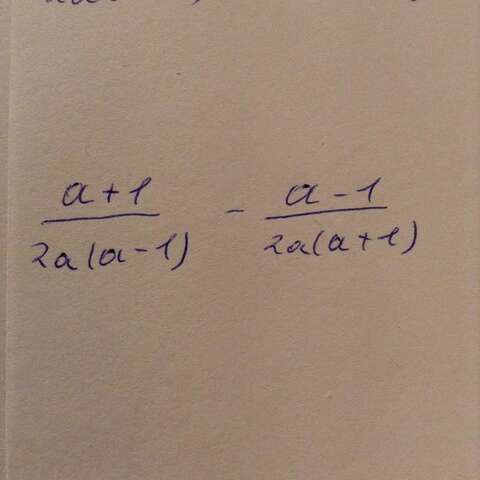 a+1 / 2a(a-1) - a-1 / 2a(a+1)